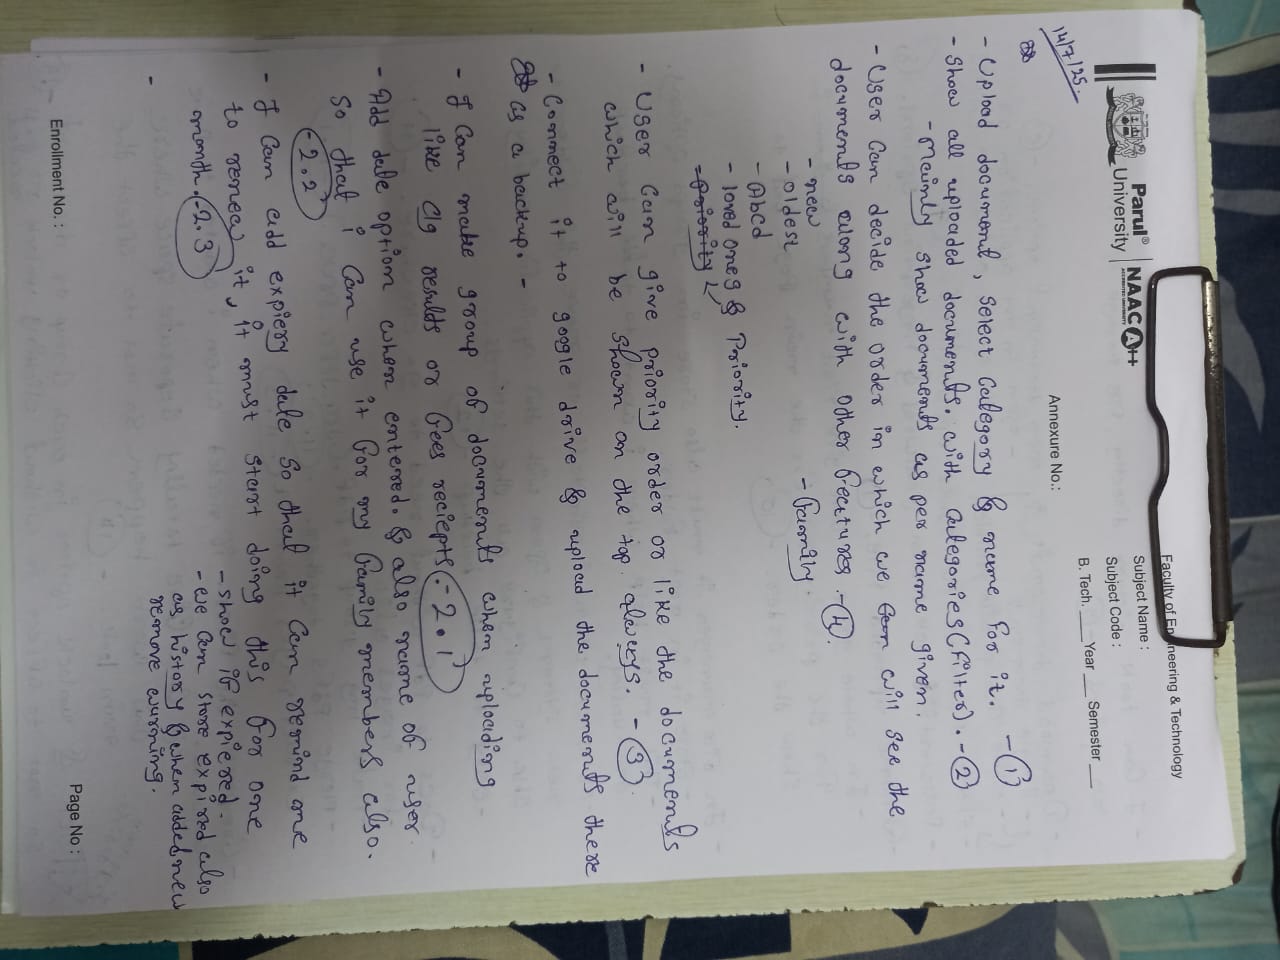 Faculty of Engineering & Technology
Parul® University
NAAC A++
ACCREDITED UNIVERSITY
Subject Name :
Subject Code :
B. Tech. ____ Year ___ Semester ___
14/7/25.
Annexure No.:
- Upload document, select Category & name for it. - 1
- Show all uploaded documents. with Categories (filter). - 2
- Mainly show documents as per name given.
- User can decide the order in which we will see the
documents along with other fectures - 4.
- new
- Family
- oldest
- Abcd
- loved ones & Priority.
- Priority
- User can give priority order or like the documents
which will be shown on the top always. - 3
- Connect it to google drive & upload the documents there
as a backup. -
- I can make group of documents when uploading
like clg results or fees reciepts. - 2.1
- Add date option when entered. & also name of user
so that i can use it for my family members also.
- 2.2
- I can add expiery date so that it can remind me
to renew it, it must start doing this for one
month. - 2.3
- show if expiered.
- we can store expired also
as history & when added new
remove warning.
-
Enrollment No. :
Page No :